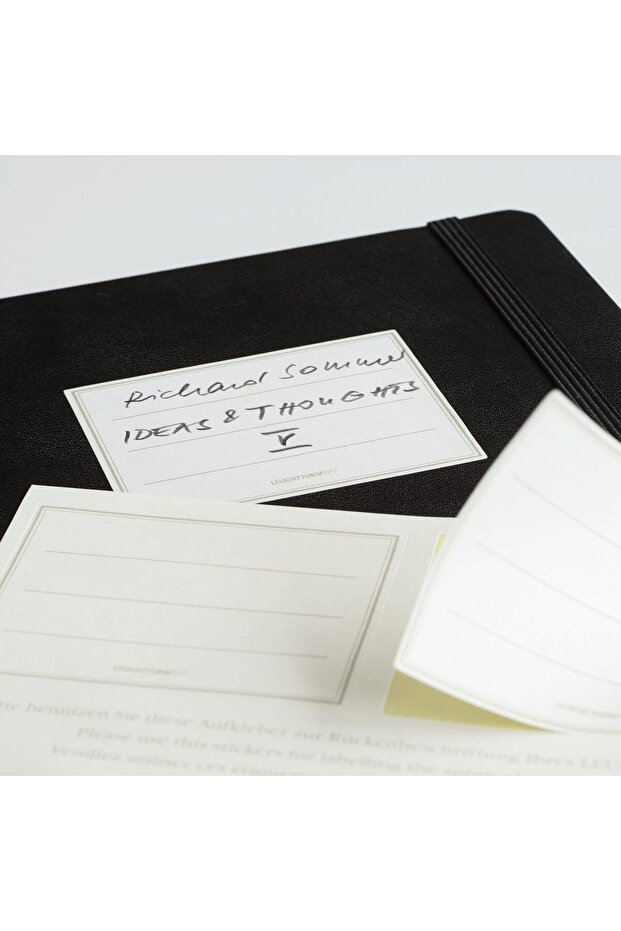 Richard Sommer
IDEAS & THOUGHTS
V
LEUCHTTURM1917
LEUCHTTURM1917
LEUCHTTURM1917
benutzen Sie diese Aufkleber zur Rückenbeschriftung Ihres
Please use this stickers for labelling the
Veuillez utiliser ces